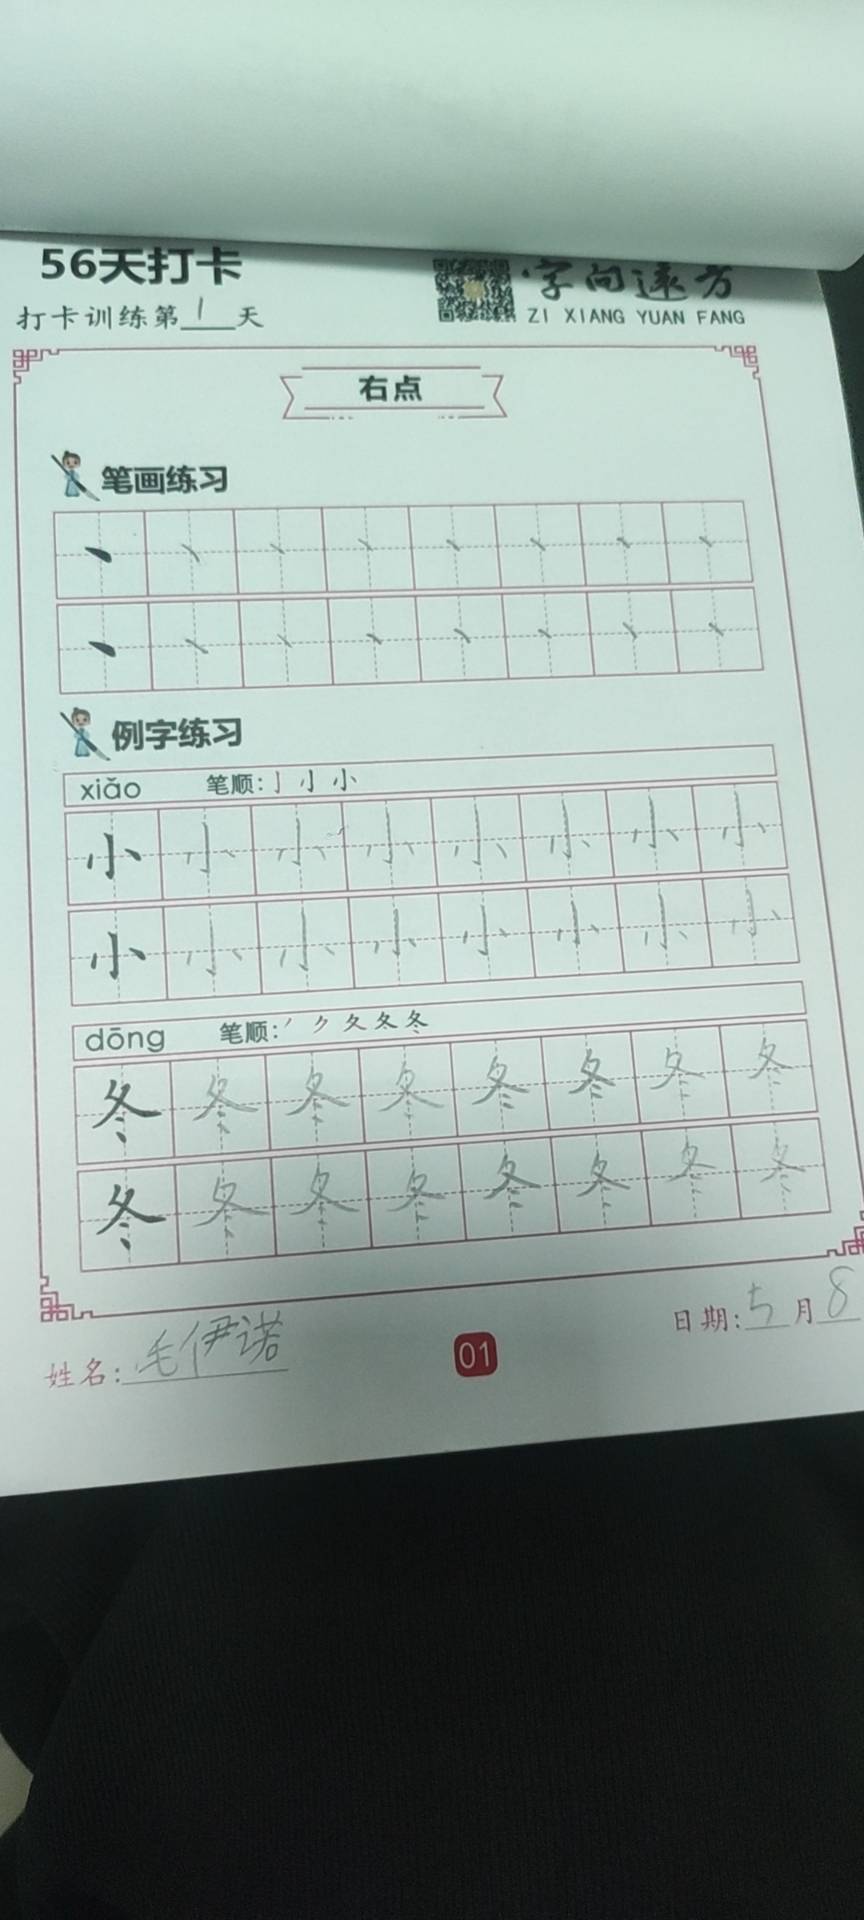 56天打卡
字向远方
打卡训练第1天
ZI XIANG YUAN FANG
右点
笔画练习
丶 丶 丶 丶 丶 丶 丶 丶
丶 丶 丶 丶 丶 丶 丶 丶
例字练习
xiǎo 笔顺:亅 小
小 小 小 小 小 小 小 小
小 小 小 小 小 小 小 小
dōng 笔顺:丿 ク 夂 冬
冬 冬 冬 冬 冬 冬 冬 冬
冬 冬 冬 冬 冬 冬 冬 冬
姓名:毛伊诺
01
日期:5月8